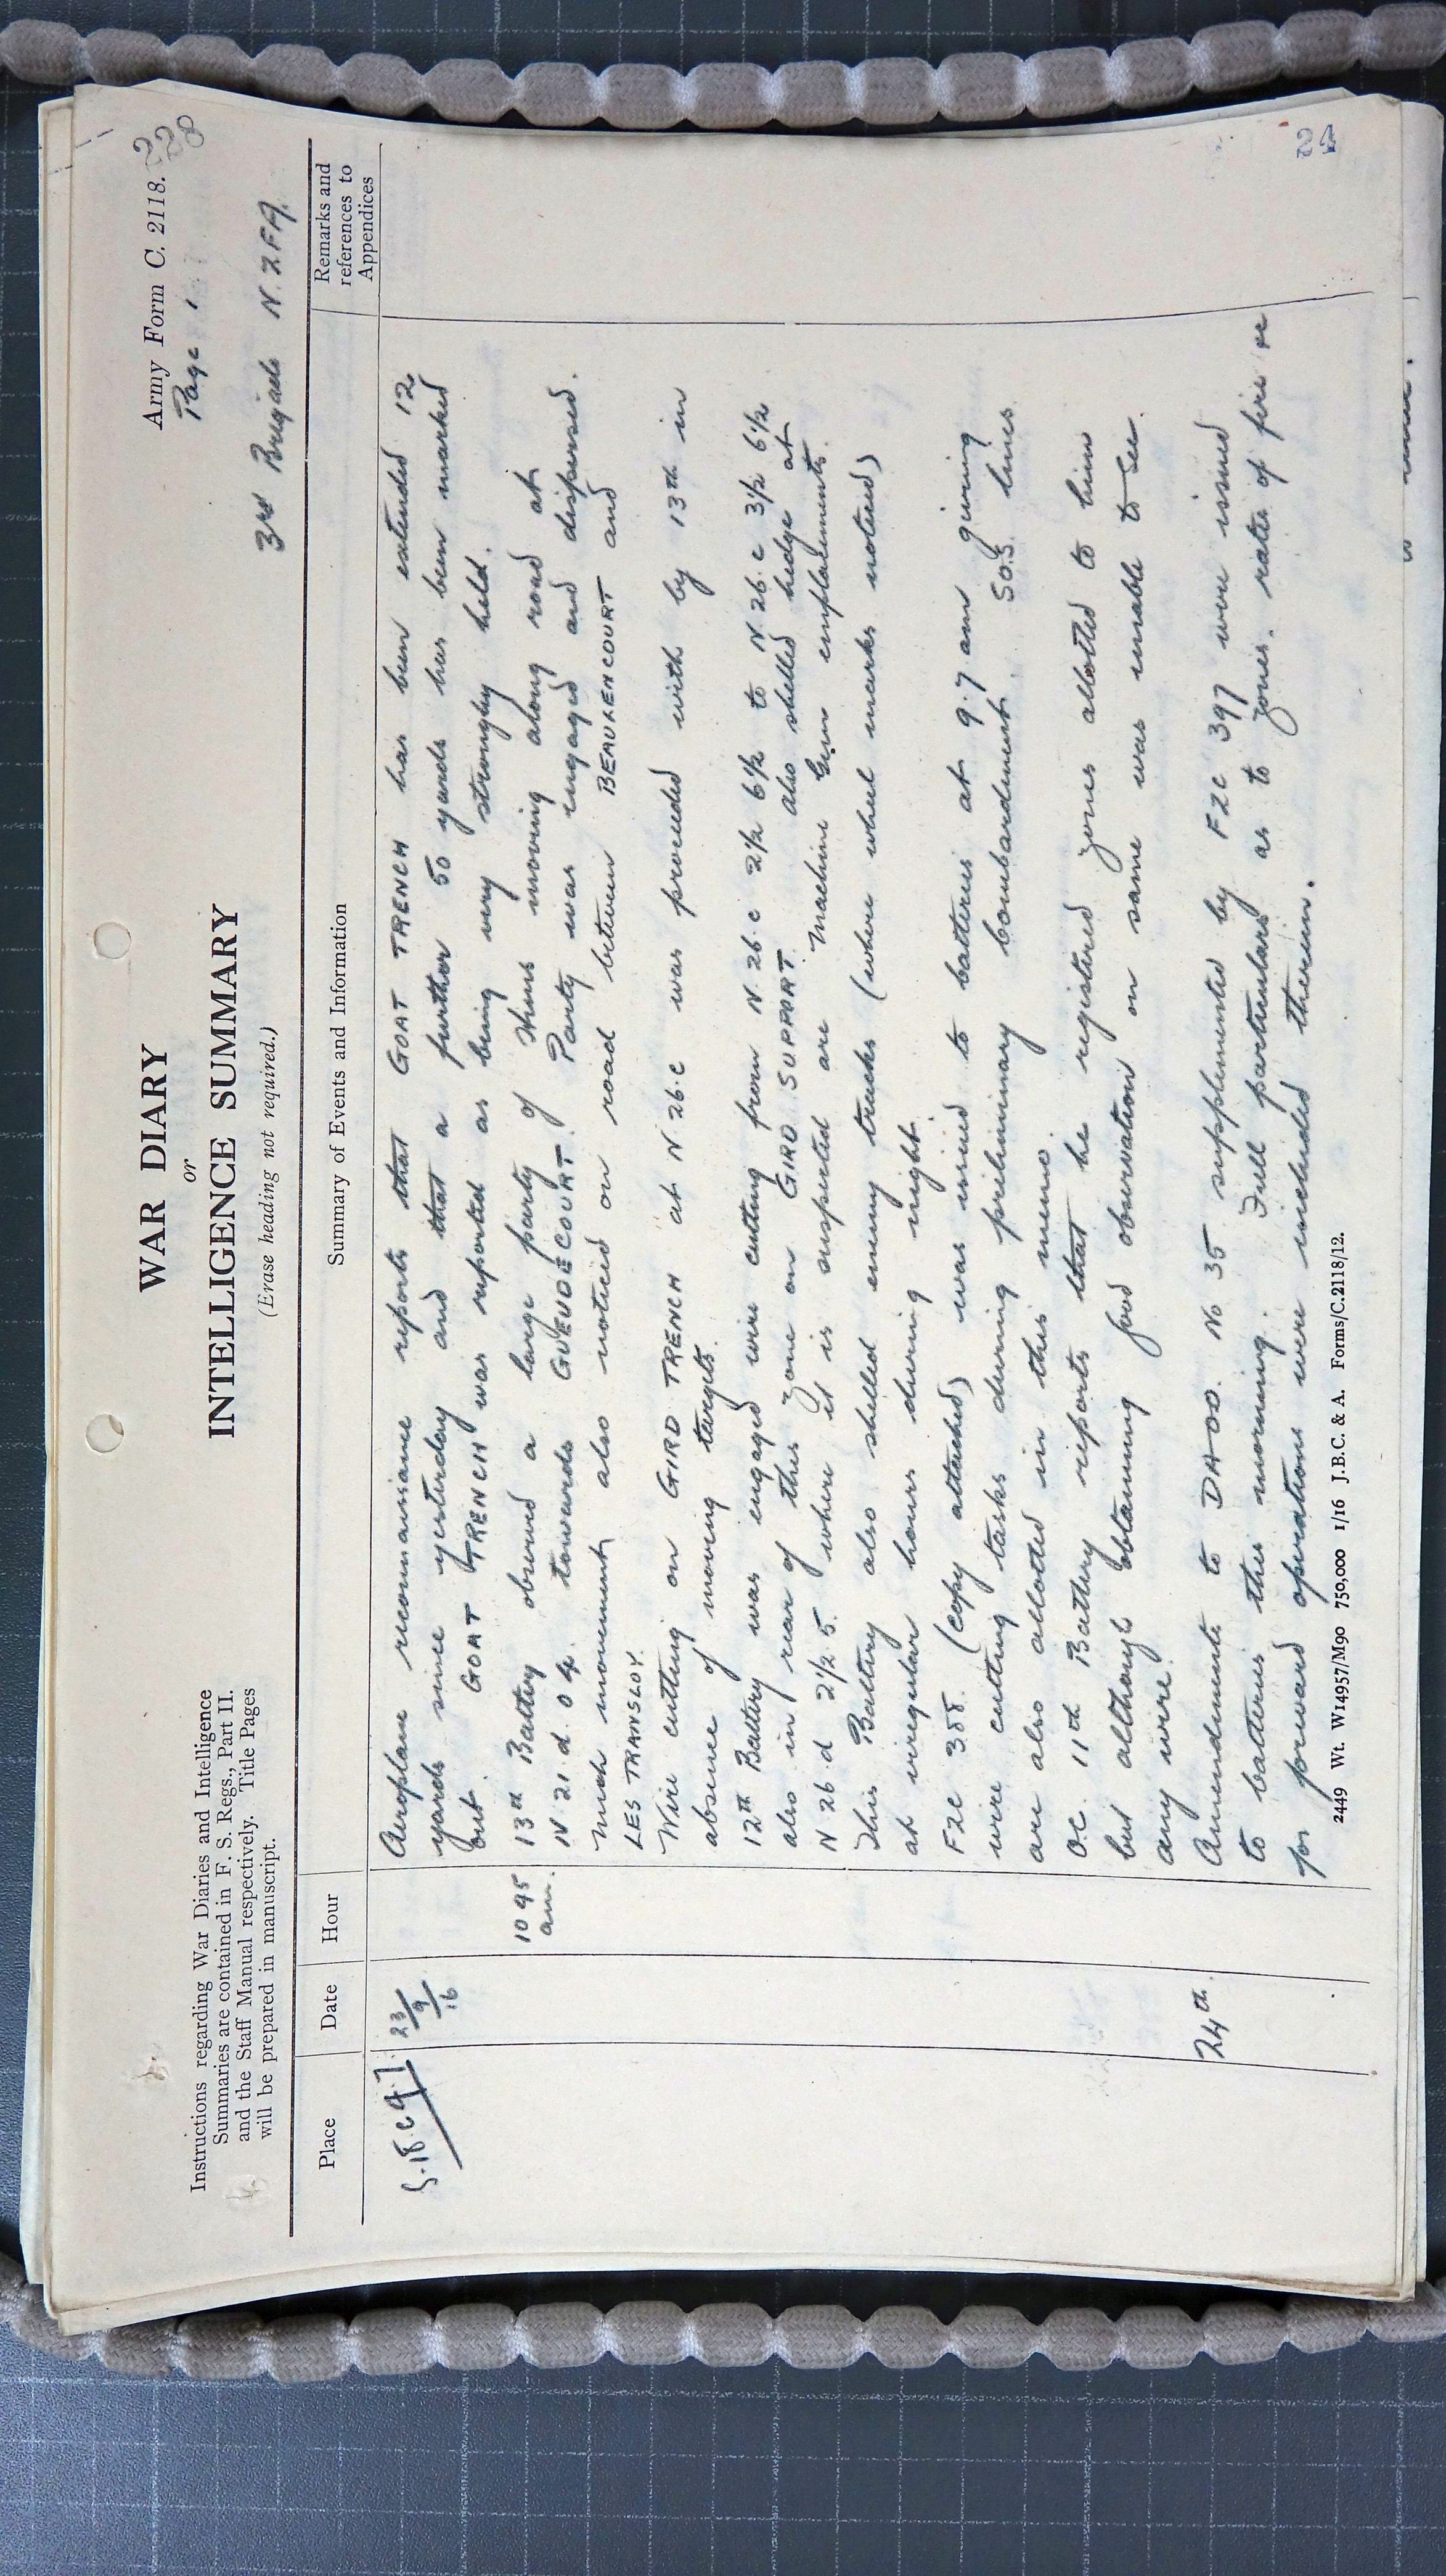 Army Form C. 2118.
228
Page 1
WAR DIARY
or
INTELLIGENCE SUMMARY
(Erase heading not required.)
3rd Brigade N.Z.F.A.
Instructions regarding War Diaries and Intelligence
Summaries are contained in F. S. Regs., Part II.
and the Staff Manual respectively. Title Pages
will be prepared in manuscript.
Place
Date
Hour
Summary of Events and Information
Remarks and
references to
Appendices
S.18.c.9.7. 23/9/16 Aeroplane reconnaissance reports that GOAT TRENCH has been extended 12
yards since yesterday and that a further 50 yards has been marked
out. GOAT TRENCH was reported as being very strongly held.
10 45 am. 13th Battery observed a large party of Huns moving along road at
N 21.d.04. towards GUEUDECOURT. Party was engaged and dispersed.
Much movement also noticed on road between BEAULENCOURT and
LES TRANSLOY.
Wire cutting on GIRD TRENCH at N 26.c was proceeded with by 13th in
absence of moving targets.
12th Battery was engaged wire cutting from N.26.c 2½ 6½ to N.26.c 3½ 6½
also in rear of this zone on GIRD SUPPORT. also shelled hedge at
N 26.d 2½.5. where it is suspected are Machine Gun emplacements.
This Battery also shelled enemy tracks (where wheel marks noticed)
at irregular hours during night.
FZC 388. (copy attached) was issued to batteries at 9.7 am giving
wire cutting tasks during preliminary bombardment. S.O.S. lines
are also allotted in this memo.
O.C. 11th Battery reports that he registered zones allotted to him
but although obtaining good observation on same was unable to see
any wire.
24th. Amendments to DAOO. No 35 supplemented by FZC 397 were issued
to batteries this morning. Full particulars as to zones, rates of fire etc
for forward operations were included therein.
2449 Wt. W14957/M90 750,000 1/16 J.B.C. & A. Forms/C.2118/12.
24